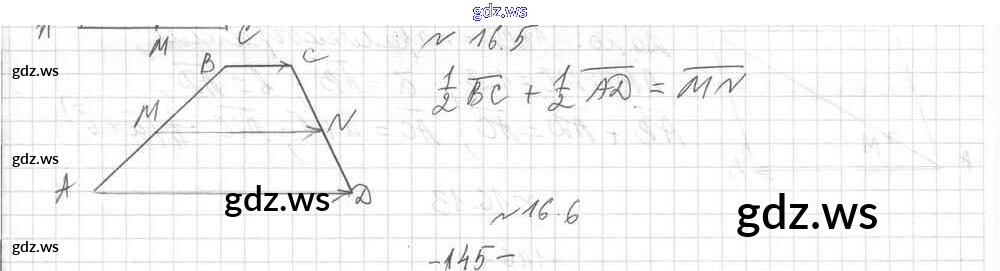 gdz.ws
A M C
№ 16.5
gdz.ws
B C
1/2 BC + 1/2 AD = MN
M N
gdz.ws
A D
gdz.ws
gdz.ws
№ 16.6
gdz.ws
-145-